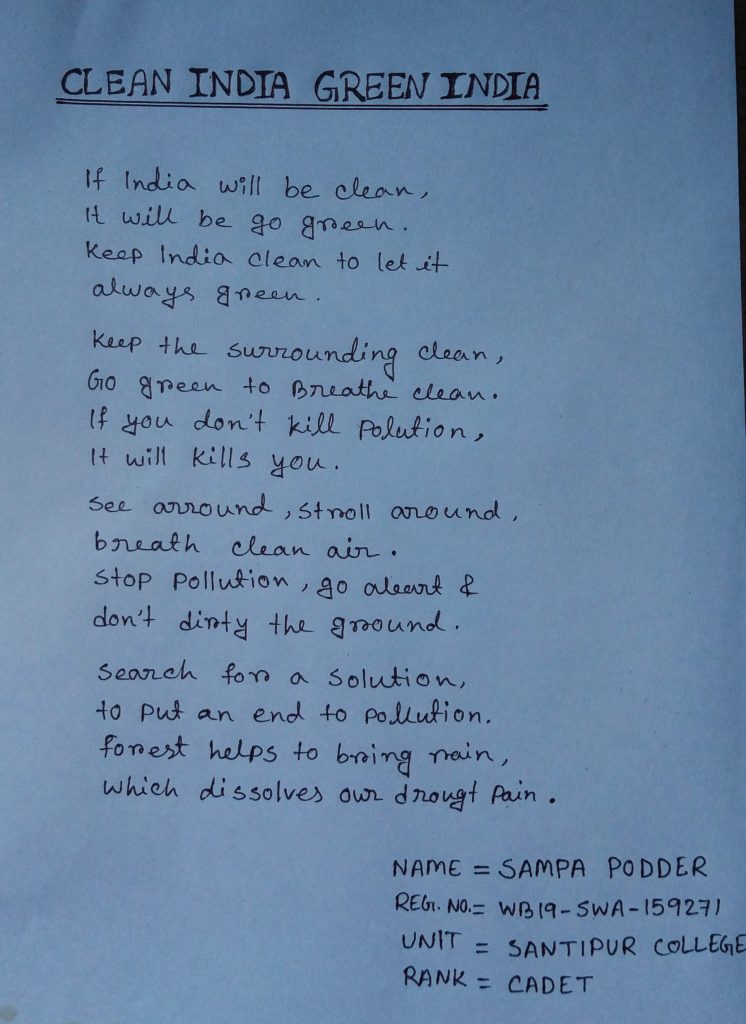 CLEAN INDIA GREEN INDIA
If India will be clean,
It will be go green.
Keep India clean to let it
always green.
Keep the surrounding clean,
Go green to Breathe clean.
If you don't kill Polution,
It will kills you.
See arround, stroll around,
breath clean air.
Stop Pollution, go aleart &
don't dirty the ground.
Search for a solution,
to put an end to pollution.
forest helps to bring rain,
which dissolves our drougt Pain.
NAME = SAMPA PODDER
REG. NO.= WB19-SWA-159271
UNIT = SANTIPUR COLLEGE
RANK = CADET